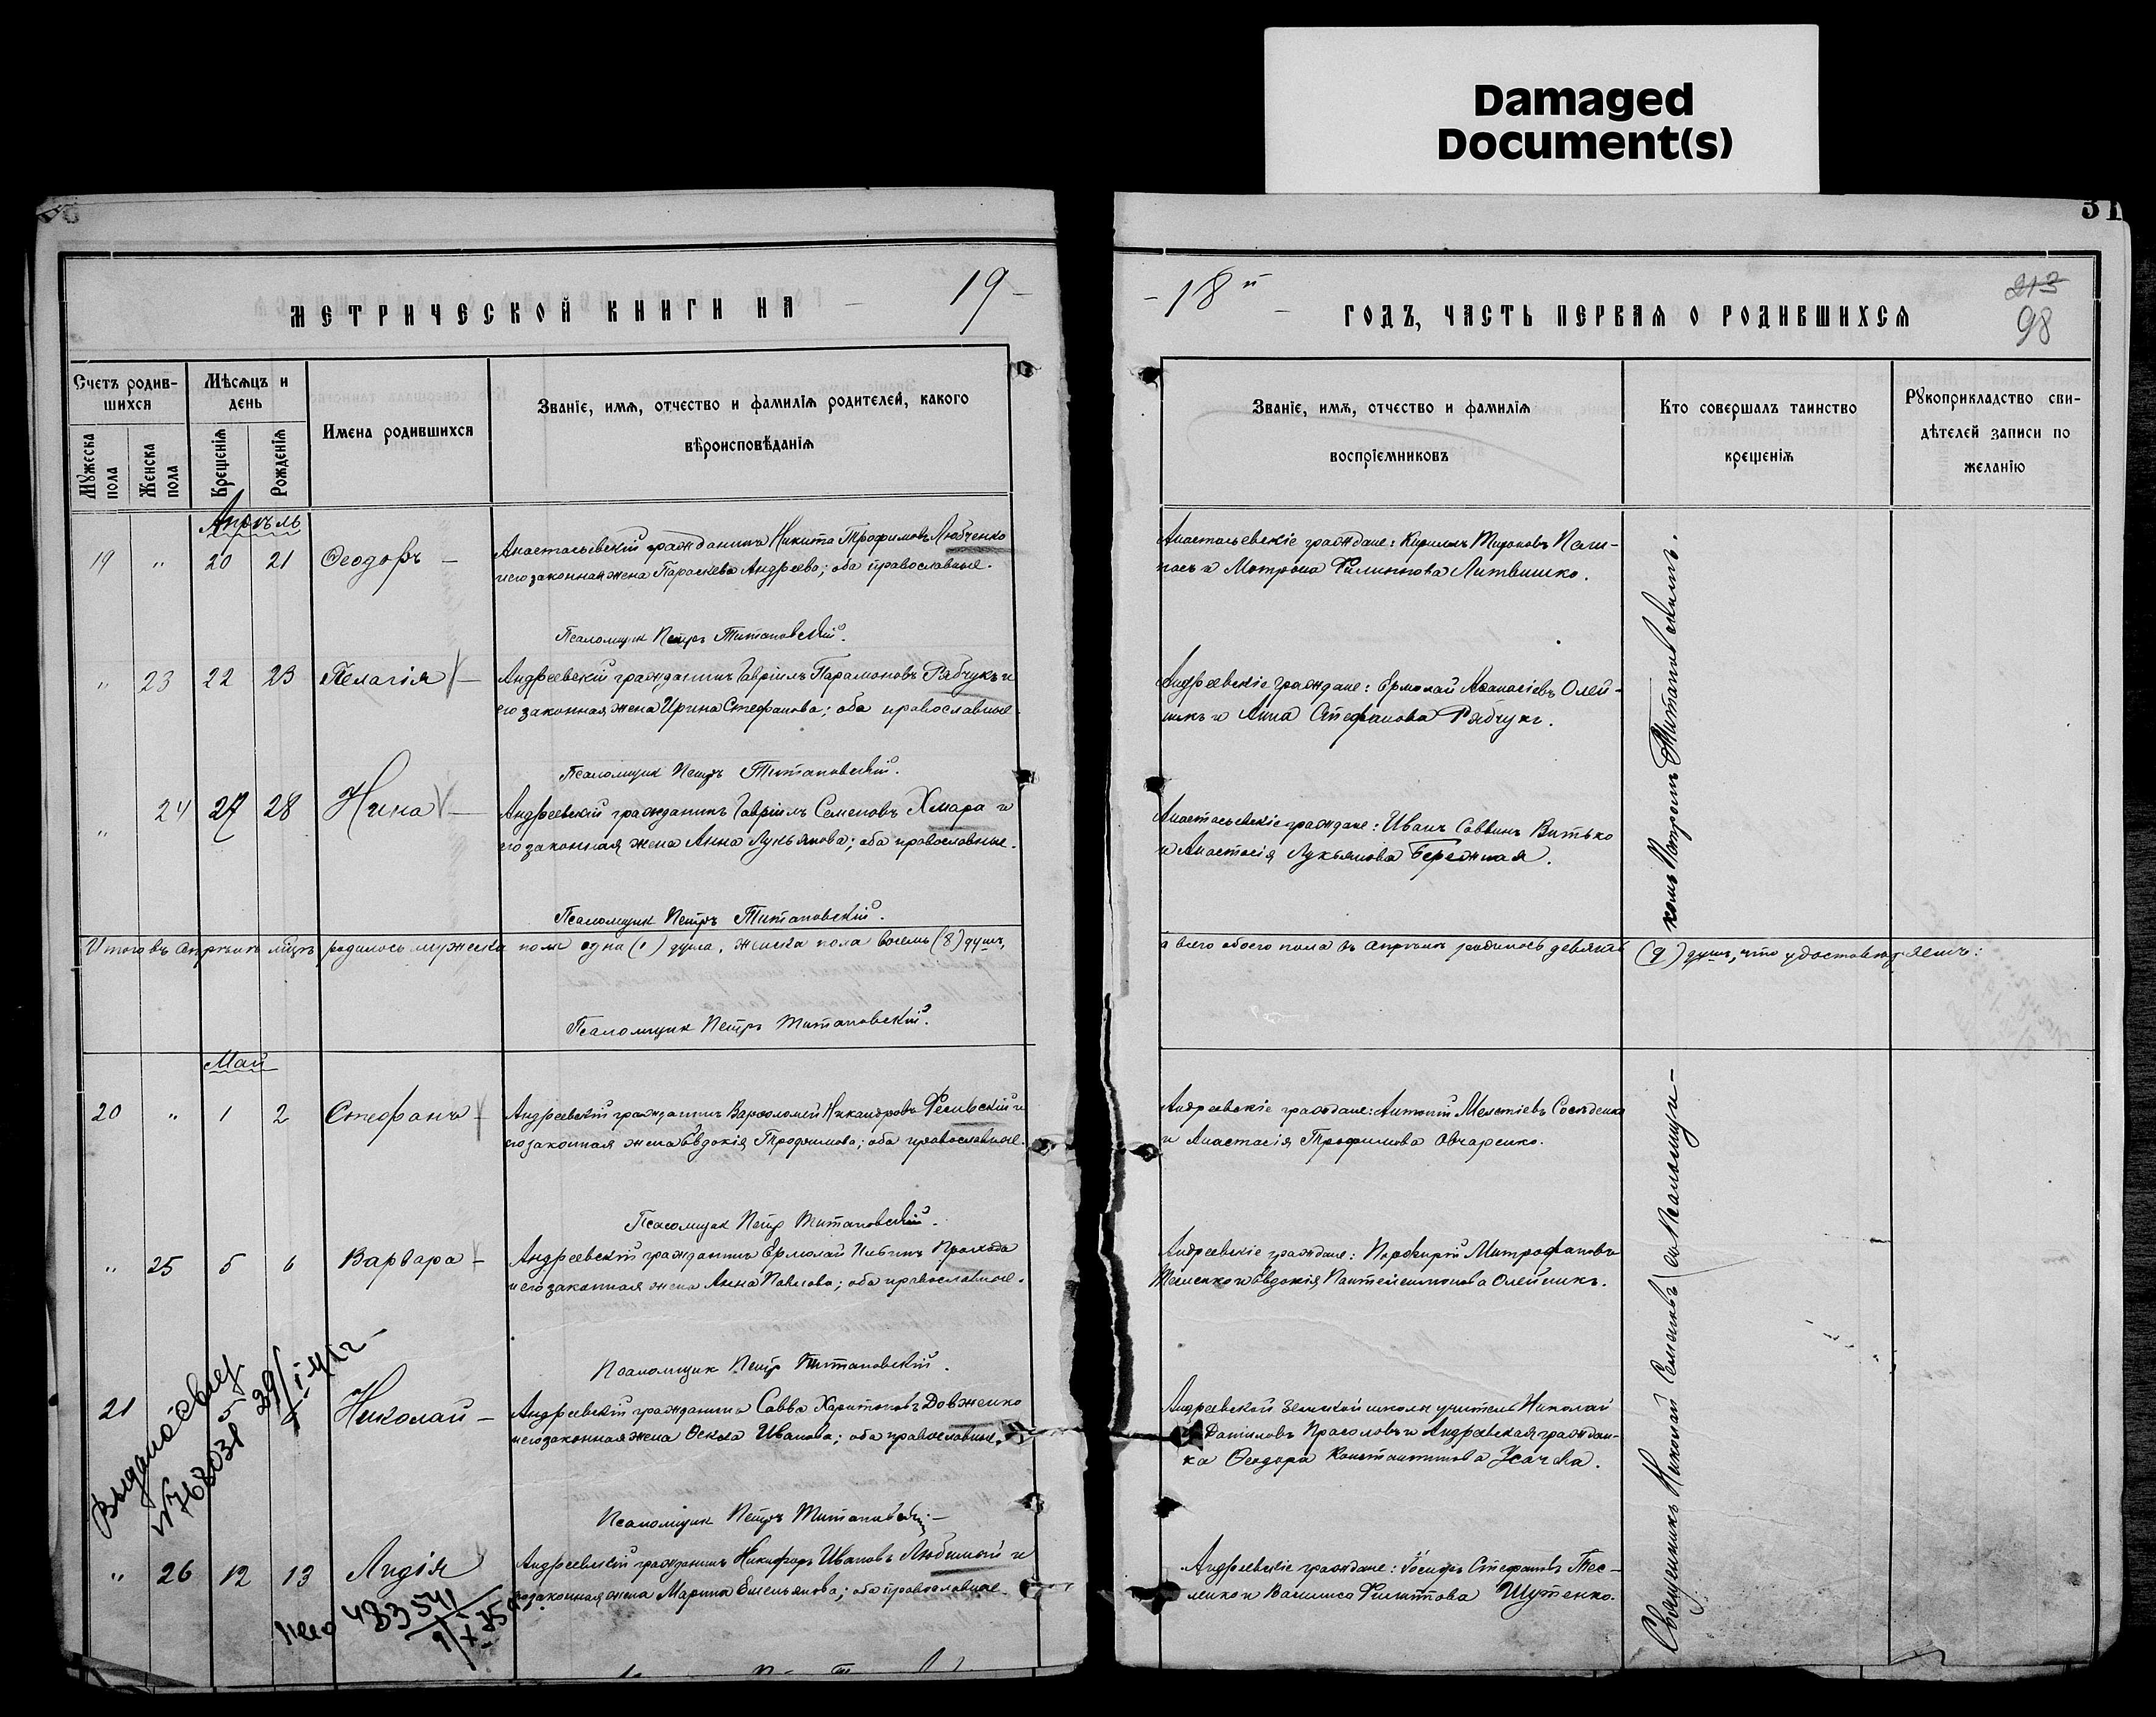 Damaged
Document(s)
31
МЕТРИЧЕСКОЙ КНИГИ НА 19-
-18й ГОДЪ, ЧАСТЬ ПЕРВАЯ О РОДИВШИХСЯ
213
98
Счетъ родив-
шихся
Мужеска пола
Женска пола
Мѣсяцъ и
день
Крещенія
Рожденія
Имена родившихся
Званіе, имя, отчество и фамилія родителей, какого
вѣроисповѣданія
Званіе, имя, отчество и фамилія
воспріемниковъ
Кто совершалъ таинство
крещенія
Рукоприкладство сви-
дѣтелей записи по
желанію
Апрѣль
19 " 20 21 Ѳеодоръ - Анастасьевскій гражданинъ Никита Трофимовъ Любченко
и его законная жена Параскева Андреева; оба православные.
Анастасьевскіе граждане: Кириллъ
и Матрона Филиппова Литвишко.
Псаломщик Петръ Титановскій.
" 23 22 23 Пелагія - Андреевскій гражданинъ Гавріилъ Парамоновъ Рябчукъ и
его законная жена Ирина Стефанова; оба православные.
Андреевскіе граждане: Ермолай Аѳанасіевъ Олей-
никъ и Анна Стефанова Рябчукъ.
Псаломщик Петръ Титановскій.
" 24 27 28 Нина - Андреевскій гражданинъ Гавріилъ Семеновъ Хмара и
его законная жена Анна Лукьянова; оба православные.
Анастасьевскіе граждане: Иванъ Саввинъ Витько
и Анастасія Лукьянова Бережная.
Псаломщик Петръ Титановскій.
Итого въ апрѣлѣ мцѣ родилось мужеска пола одна (1) душа, женска пола восемь (8) душъ,
а всего обоего пола въ апрѣлѣ родилось девять (9) душъ, что удостовѣряемъ:
Псаломщик Петръ Титановскій.
Май
20 " 1 2 Стефанъ - Андреевскій гражданинъ Варѳоломей Никандровъ и
его законная жена Евдокія Трофимова; оба православные.
Андреевскіе граждане: Антоній Мелетіевъ
и Анастасія Трофимова Овчаренко.
Псаломщик Петр Титановскій.
" 25 5 6 Варвара - Андреевскій гражданинъ Ермолай
и его законная жена Анна Павлова; оба православные.
Андреевскіе граждане: Порфирій Митрофановъ
и Евдокія Пантелеимонова Олейникъ.
Псаломщик Петр Титановскій.
21 5 Николай - Андреевскій гражданинъ Савва Харитоновъ Довженко
и его законная жена Ѳекла Иванова; оба православные.
Андреевской земской школы учитель Николай
Даниловъ Прасоловъ и Андреевская граждан-
ка Ѳеодора Константинова Усачева.
Псаломщик Петръ Титановскій -
" 26 12 13 Лидія Андреевскій гражданинъ Никифоръ Ивановъ Любимый и
его законная жена Марина Емельянова; оба православные.
Андреевскіе граждане: Іосифъ Стефановъ Тес-
ленко и Василиса Филиппова Шутенко.
483541
Священникъ Николай Семеновъ съ псаломщи-
комъ Петромъ Титановскимъ.